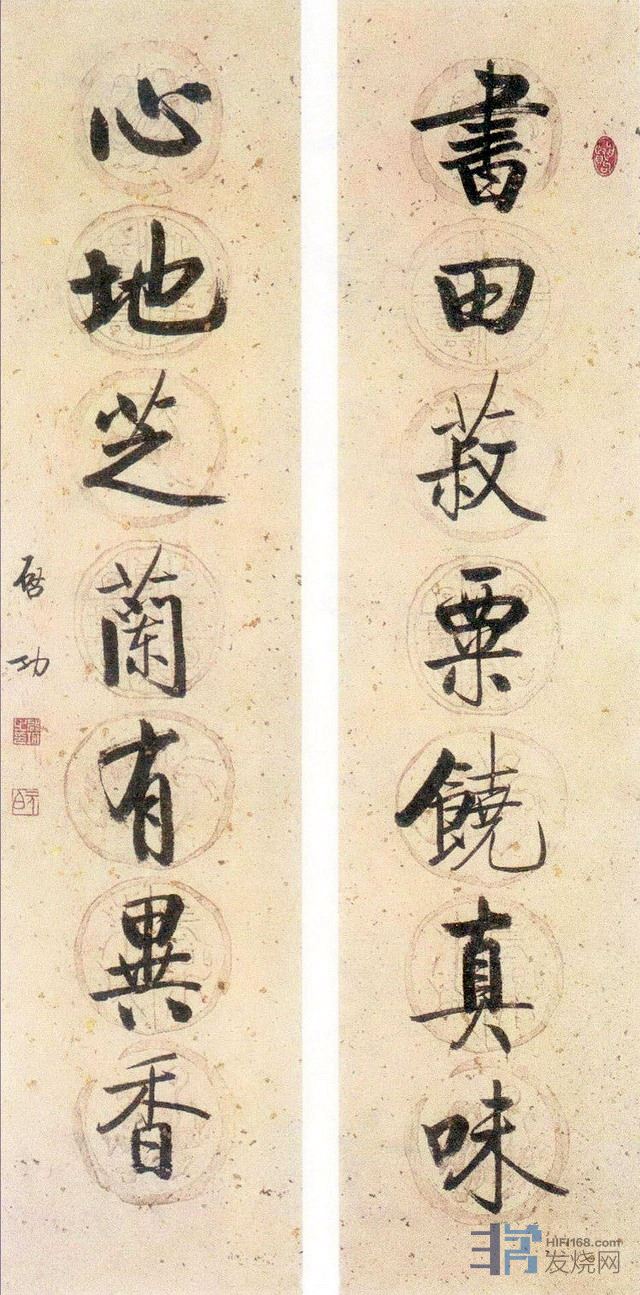 書田菽粟饒真味
心地芝蘭有異香
啓功
HIFI168.com
发烧网